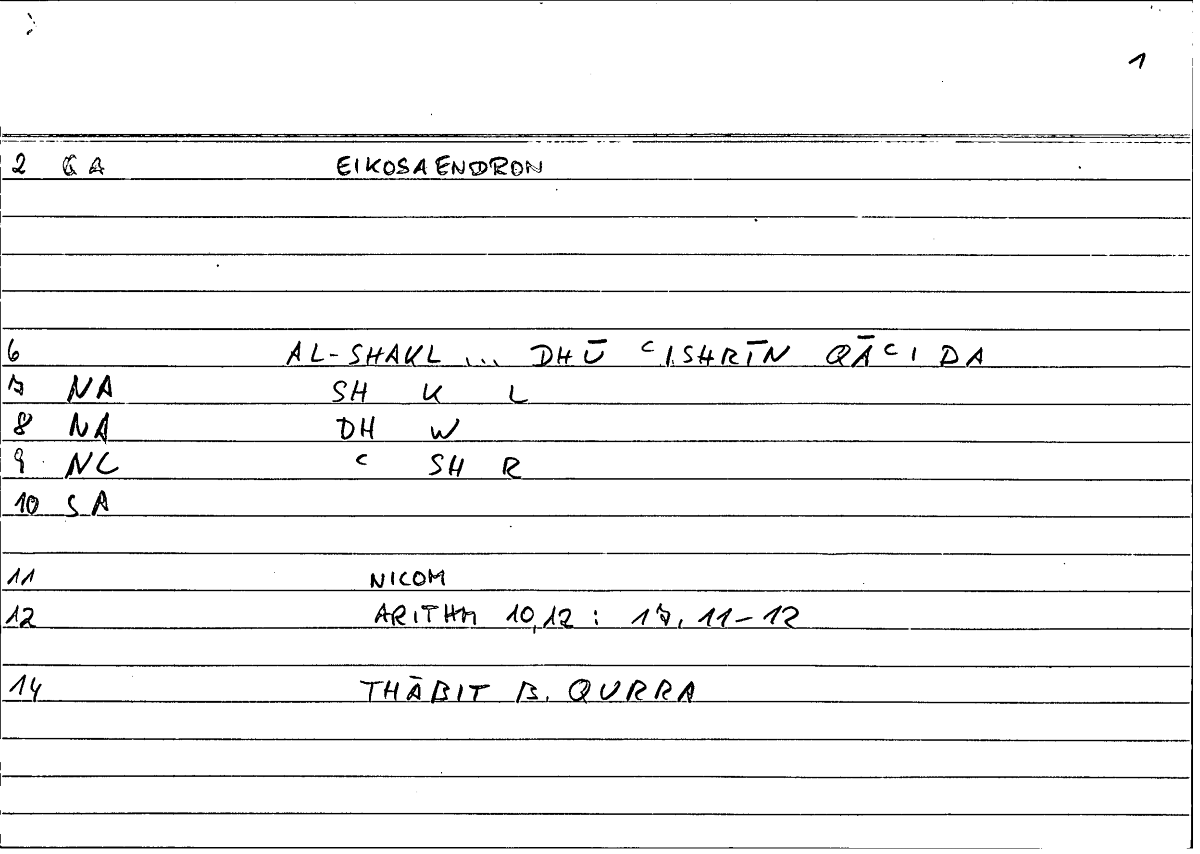 1
2 GA EIKOSAENDRON
6 AL-SHAKL ... DHŪ ʿISHRĪN QĀʿIDA
7 NA SH K L
8 NA DH W
9 NC ʿ SH R
10 SA
11 NICOM
12 ARITHM 10,12 : 17, 11-12
14 THĀBIT B. QURRA